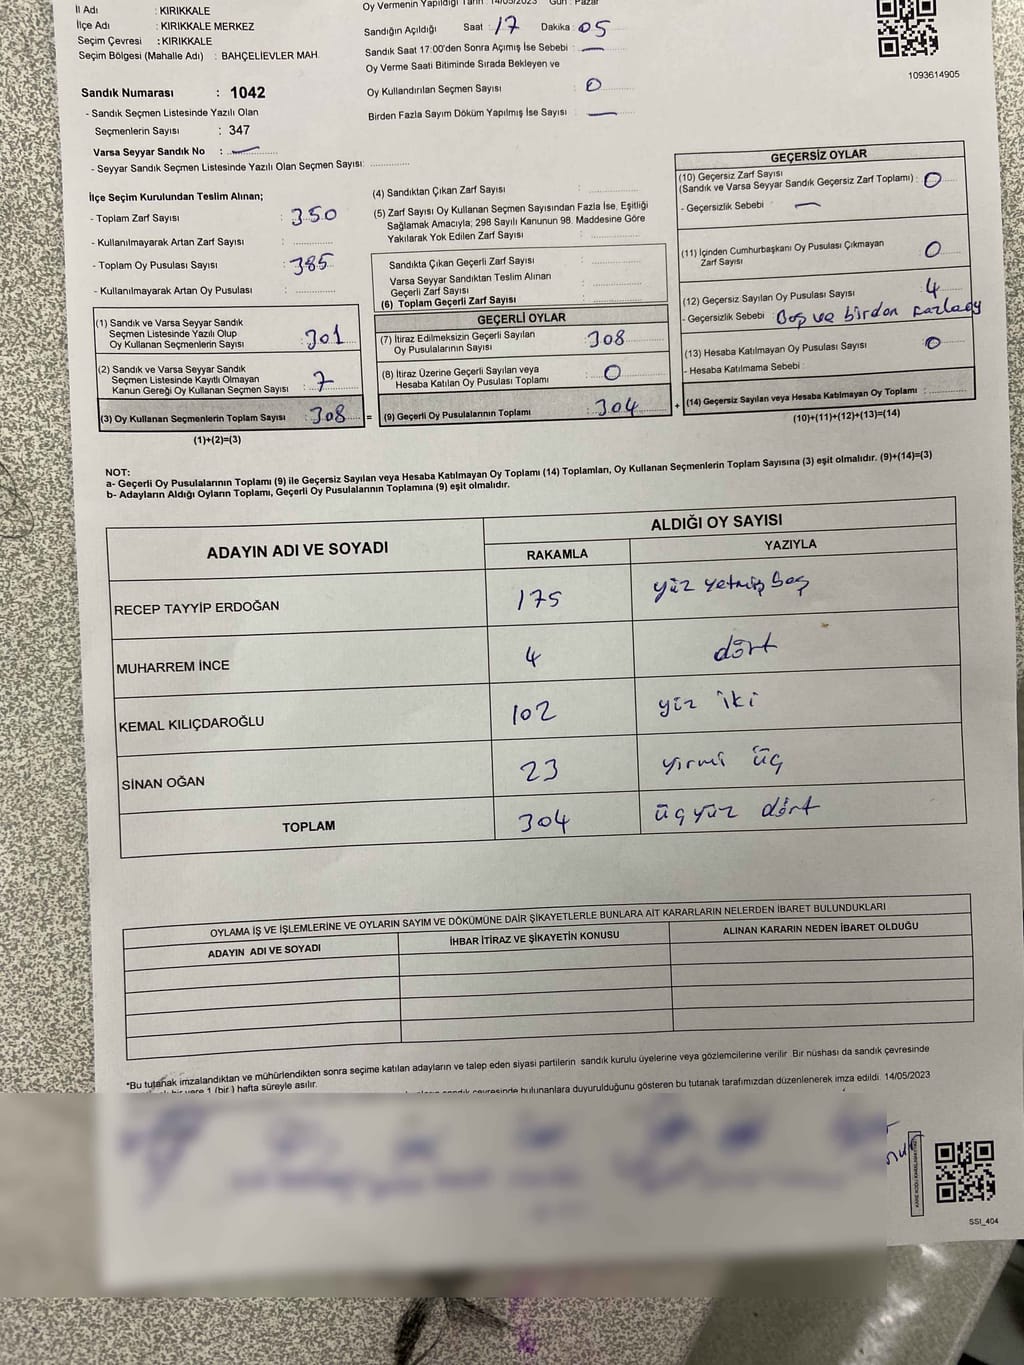 İl Adı : KIRIKKALE
İlçe Adı : KIRIKKALE MERKEZ
Seçim Çevresi : KIRIKKALE
Seçim Bölgesi (Mahalle Adı) : BAHÇELİEVLER MAH.
Sandık Numarası : 1042
- Sandık Seçmen Listesinde Yazılı Olan
Seçmenlerin Sayısı : 347
Varsa Seyyar Sandık No : —
- Seyyar Sandık Seçmen Listesinde Yazılı Olan Seçmen Sayısı: ............
Oy Vermenin Yapıldığı Tarih : 14/05/2023 Gün : Pazar
Sandığın Açıldığı Saat : 17 Dakika : 05
Sandık Saat 17:00'den Sonra Açımış İse Sebebi : —
Oy Verme Saati Bitiminde Sırada Bekleyen ve
Oy Kullandırılan Seçmen Sayısı : 0
Birden Fazla Sayım Döküm Yapılmış İse Sayısı : —
1093614905
İlçe Seçim Kurulundan Teslim Alınan;
- Toplam Zarf Sayısı : 350
- Kullanılmayarak Artan Zarf Sayısı : ............
- Toplam Oy Pusulası Sayısı : 385
- Kullanılmayarak Artan Oy Pusulası : ............
(1) Sandık ve Varsa Seyyar Sandık
Seçmen Listesinde Yazılı Olup
Oy Kullanan Seçmenlerin Sayısı : 301
(2) Sandık ve Varsa Seyyar Sandık
Seçmen Listesinde Kayıtlı Olmayan
Kanun Gereği Oy Kullanan Seçmen Sayısı : 7
(3) Oy Kullanan Seçmenlerin Toplam Sayısı : 308
(1)+(2)=(3)
=
(4) Sandıktan Çıkan Zarf Sayısı : ............
(5) Zarf Sayısı Oy Kullanan Seçmen Sayısından Fazla İse, Eşitliği
Sağlamak Amacıyla; 298 Sayılı Kanunun 98. Maddesine Göre
Yakılarak Yok Edilen Zarf Sayısı : ............
Sandıkta Çıkan Geçerli Zarf Sayısı : ............
Varsa Seyyar Sandıktan Teslim Alınan
Geçerli Zarf Sayısı : ............
(6) Toplam Geçerli Zarf Sayısı : ............
GEÇERLİ OYLAR
(7) İtiraz Edilmeksizin Geçerli Sayılan
Oy Pusulalarının Sayısı : 308
(8) İtiraz Üzerine Geçerli Sayılan veya
Hesaba Katılan Oy Pusulası Toplamı : 0
(9) Geçerli Oy Pusulalarının Toplamı : 304
+
GEÇERSİZ OYLAR
(10) Geçersiz Zarf Sayısı
(Sandık ve Varsa Seyyar Sandık Geçersiz Zarf Toplamı) : 0
- Geçersizlik Sebebi : —
(11) İçinden Cumhurbaşkanı Oy Pusulası Çıkmayan
Zarf Sayısı : 0
(12) Geçersiz Sayılan Oy Pusulası Sayısı : 4
- Geçersizlik Sebebi : Boş ve birden
(13) Hesaba Katılmayan Oy Pusulası Sayısı : 0
- Hesaba Katılmama Sebebi :
(14) Geçersiz Sayılan veya Hesaba Katılmayan Oy Toplamı : ............
(10)+(11)+(12)+(13)=(14)
NOT:
a- Geçerli Oy Pusulalarının Toplamı (9) ile Geçersiz Sayılan veya Hesaba Katılmayan Oy Toplamı (14) Toplamları, Oy Kullanan Seçmenlerin Toplam Sayısına (3) eşit olmalıdır. (9)+(14)=(3)
b- Adayların Aldığı Oyların Toplamı, Geçerli Oy Pusulalarının Toplamına (9) eşit olmalıdır.
ADAYIN ADI VE SOYADI ALDIĞI OY SAYISI
RAKAMLA YAZIYLA
RECEP TAYYİP ERDOĞAN 175 yüz yetmiş beş
MUHARREM İNCE 4 dört
KEMAL KILIÇDAROĞLU 102 yüz iki
SİNAN OĞAN 23 yirmi üç
TOPLAM 304 üçyüz dört
OYLAMA İŞ VE İŞLEMLERİNE VE OYLARIN SAYIM VE DÖKÜMÜNE DAİR ŞİKAYETLERLE BUNLARA AİT KARARLARIN NELERDEN İBARET BULUNDUKLARI
ADAYIN ADI VE SOYADI İHBAR İTİRAZ VE ŞİKAYETİN KONUSU ALINAN KARARIN NEDEN İBARET OLDUĞU
*Bu tutanak imzalandıktan ve mühürlendikten sonra seçime katılan adayların ve talep eden siyasi partilerin sandık kurulu üyelerine veya gözlemcilerine verilir. Bir nüshası da sandık çevresinde
1 (bir) hafta süreyle asılır.
bulunanlara duyurulduğunu gösteren bu tutanak tarafımızdan düzenlenerek imza edildi. 14/05/2023
SSI_404